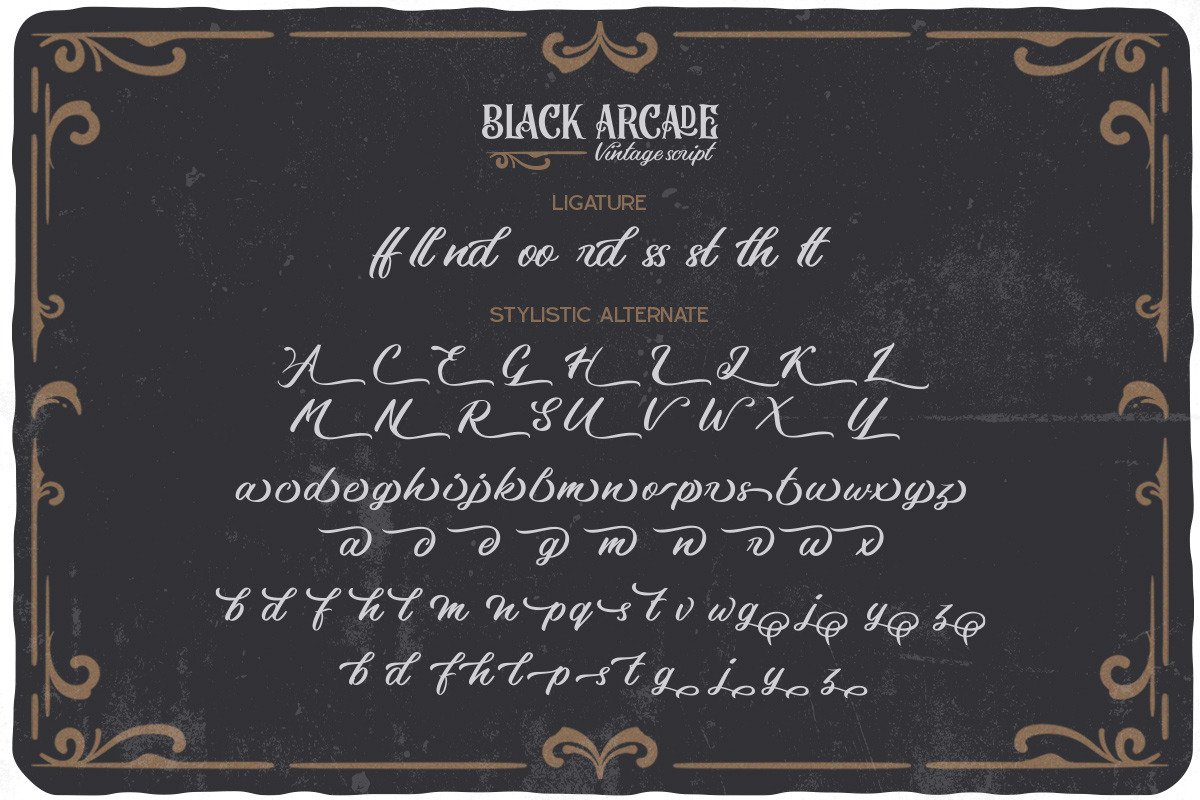 BLACK ARCADE
Vintage script
LIGATURE
ff ll nd oo rd ss st th tt
STYLISTIC ALTERNATE
A C E G H I J K L
M N R S U V W X Y
a c d e g h i j k l m n o p r s t u w x y z
a d e g m n r w x
b d f h l m n p q s t v w g j y z
b d f h l p s t g j y z